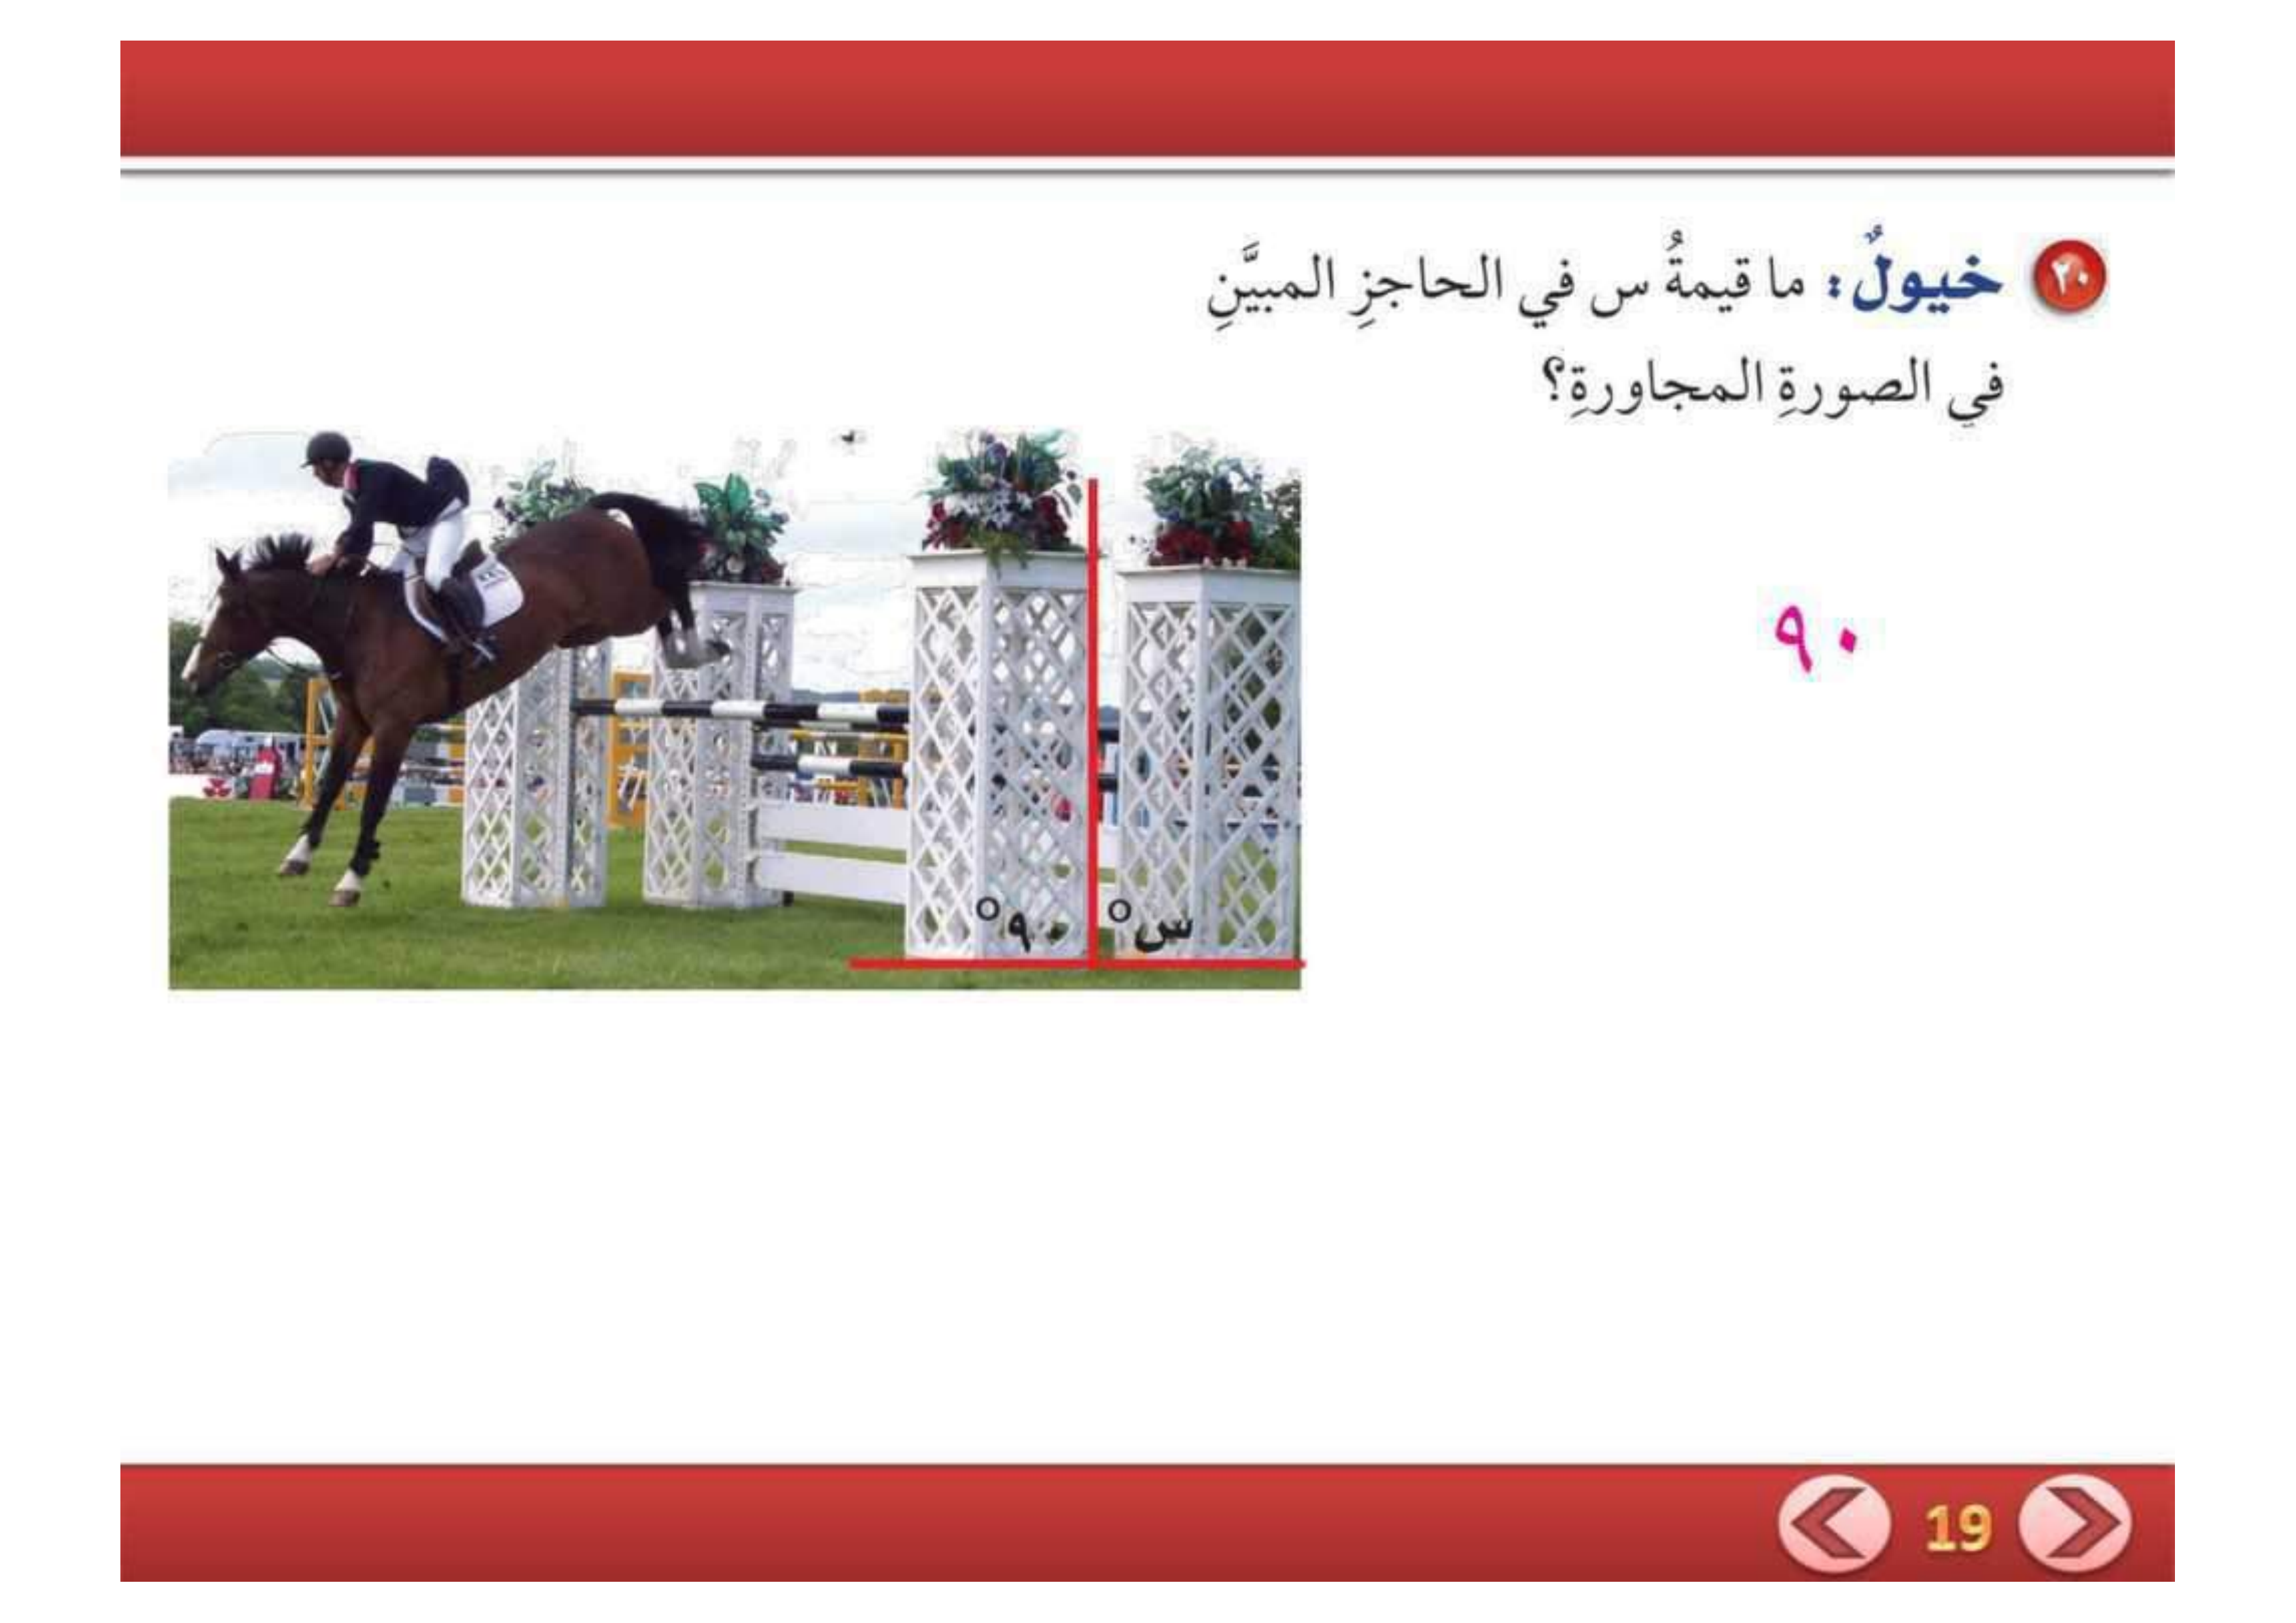 ٢٠ خيولٌ: ما قيمةُ س في الحاجزِ المبيَّنِ
في الصورةِ المجاورةِ؟
٩٠
٩٠° س°
19